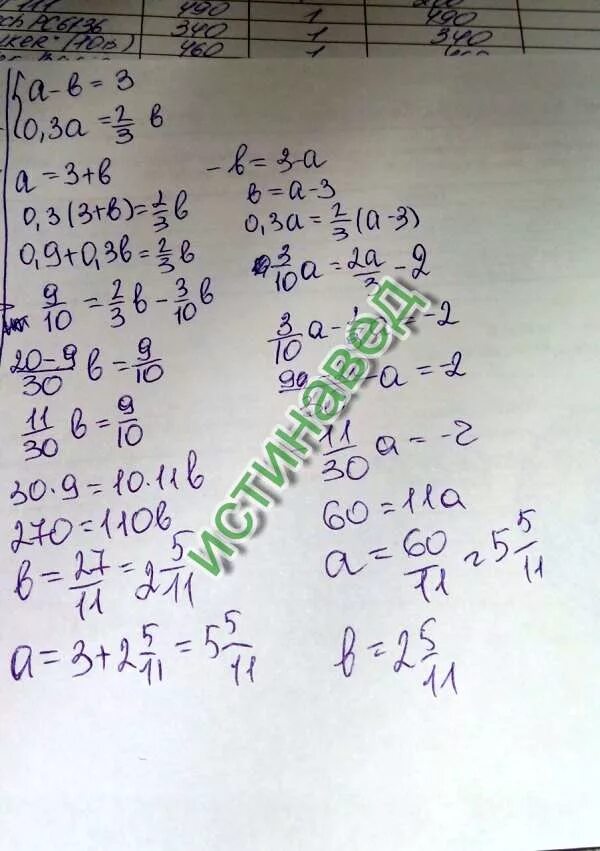 111 490 1 490
ch PC6136 340 1 340
ker" (10в) 460 1
a - в = 3
0,3a = 2/3 в
a = 3 + в
0,3(3+в) = 2/3 в
0,9 + 0,3в = 2/3 в
9/10 = 2/3 в - 3/10 в
20-9/30 в = 9/10
11/30 в = 9/10
30·9 = 10·11в
270 = 110в
в = 27/11 = 2 5/11
a = 3 + 2 5/11 = 5 5/11
-в = 3-a
в = a-3
0,3a = 2/3 (a-3)
3/10 a = 2a/3 - 2
3/10 a - = -2
a = -2
11/30 a = -2
60 = 11a
a = 60/11 = 5 5/11
в = 2 5/11
истинавед